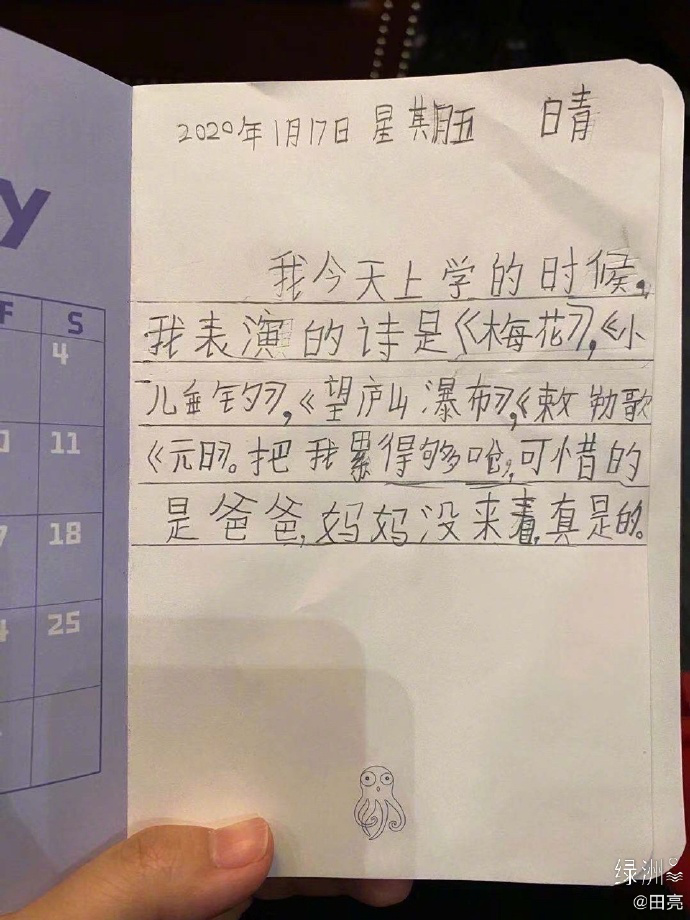 y
F
S
4
11
18
25
2020年1月17日 星期五 晴
我今天上学的时候,
我表演的诗是《梅花》,《小
儿垂钓》,《望庐山瀑布》,《敕勒歌
《元日》。把我累得够呛,可惜的
是爸爸,妈妈没来看,真是的。
绿洲
@田亮